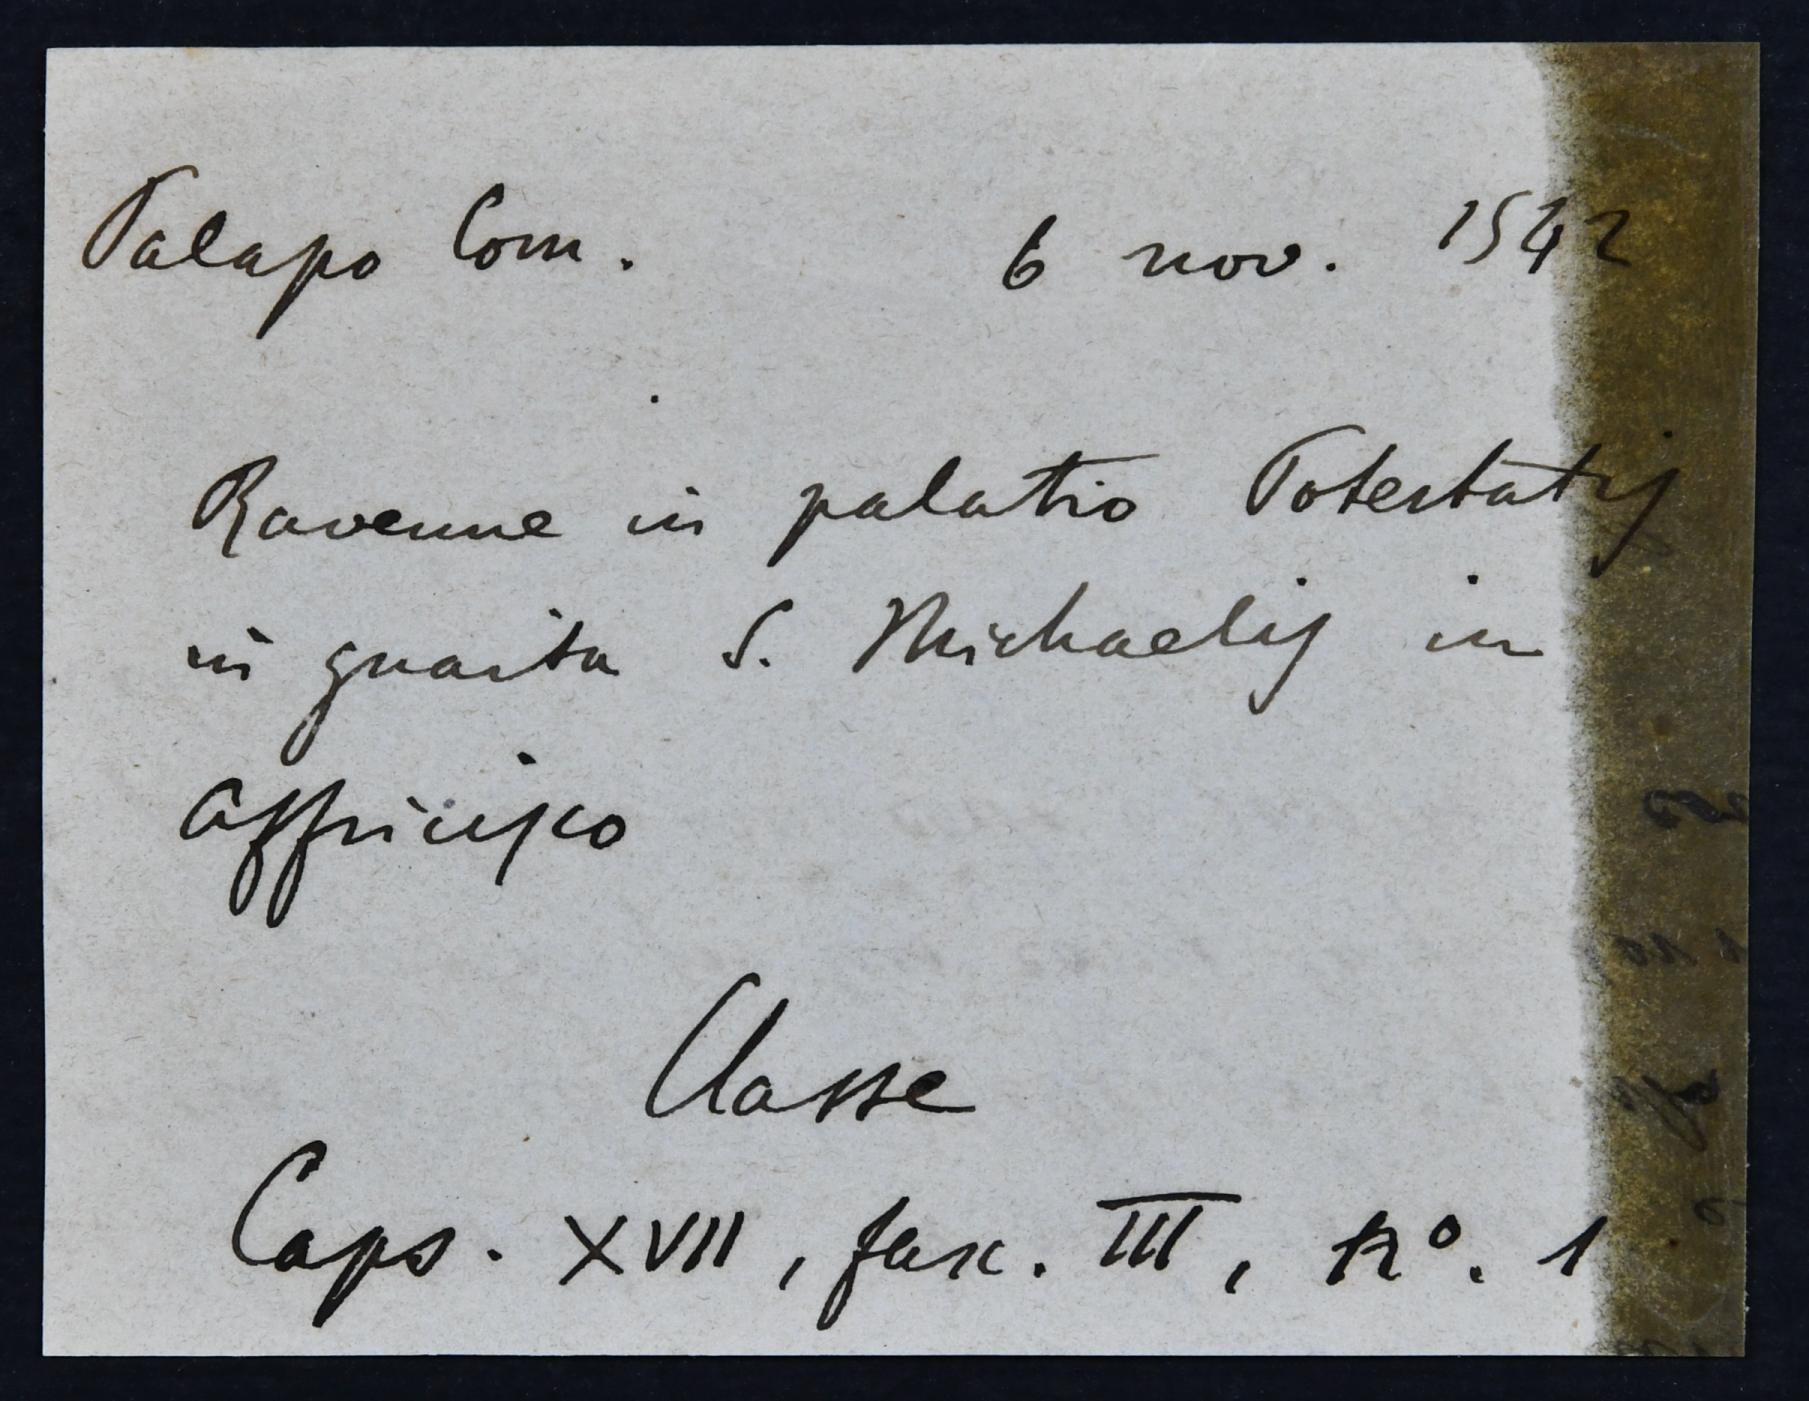 Palazzo Com. 6 nov. 1542
Ravenne in palatio Potestatis
in guaita S. Michaelis in
Affricisco
Classe
Caps. XVII, fasc. III, No. 1